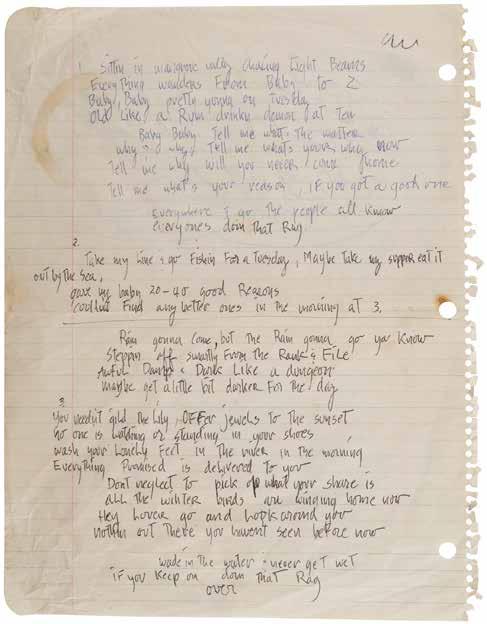 1. Sittin in mangrove valley chasing Light Beams
Everything wanders From Baby to Z
Baby, Baby pretty gonna on Tuesday
Old Like a Rum drinkin demon at Tea
Baby Baby Tell me whats the matter
why o why, Tell me what's your why now
Tell me why will you never come home
Tell me what's your reason, if you got a good one
Everywhere I go the people all know
everyones doin That Rag
2.
Take my Line & go Fishin For a Tuesday, Maybe Take my supper eat it
out by the sea,
gave my baby 20-40 good Reasons
couldnt Find any better ones in the morning at 3.
Rain gonna come, but the Rain gonna go ya know
Steppin off smartly From the Rank & File
Awful Damp & Dark Like a dungeon
maybe get a little bit darker For the day
3.
You needn't gild the Lily, OFFer jewels to the sunset
no one is Watching or standing in your shoes
wash your Lonely Feet in the river in the morning
Everything Promised is delivered to you
Dont neglect to pick up what your share is
all the winter birds are winging home now
Hey Lover go and Look around you
nothin out There you havent seen before now
wade in the water & never get wet
if you keep on doin that Rag
over